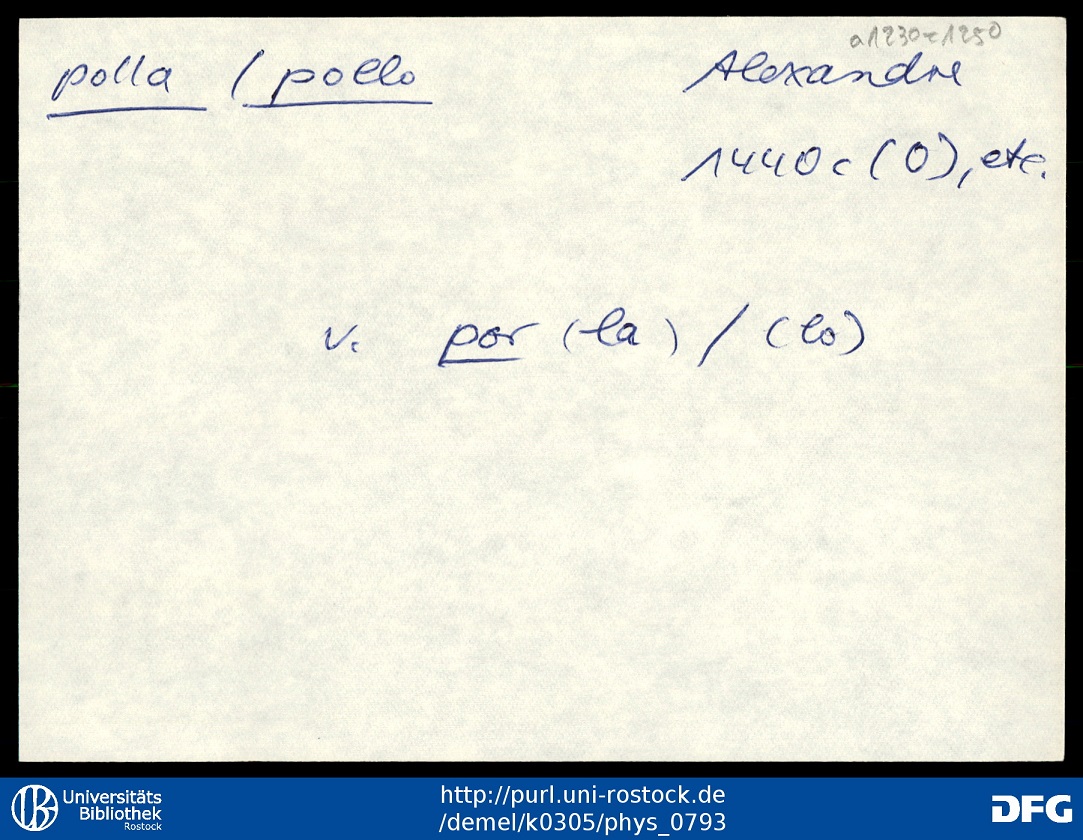 a1230-c1250
polla / pollo Alexandre
1440c (O), etc.
v. por (la) / (lo)
Universitäts
Bibliothek
Rostock
http://purl.uni-rostock.de
/demel/k0305/phys_0793
DFG